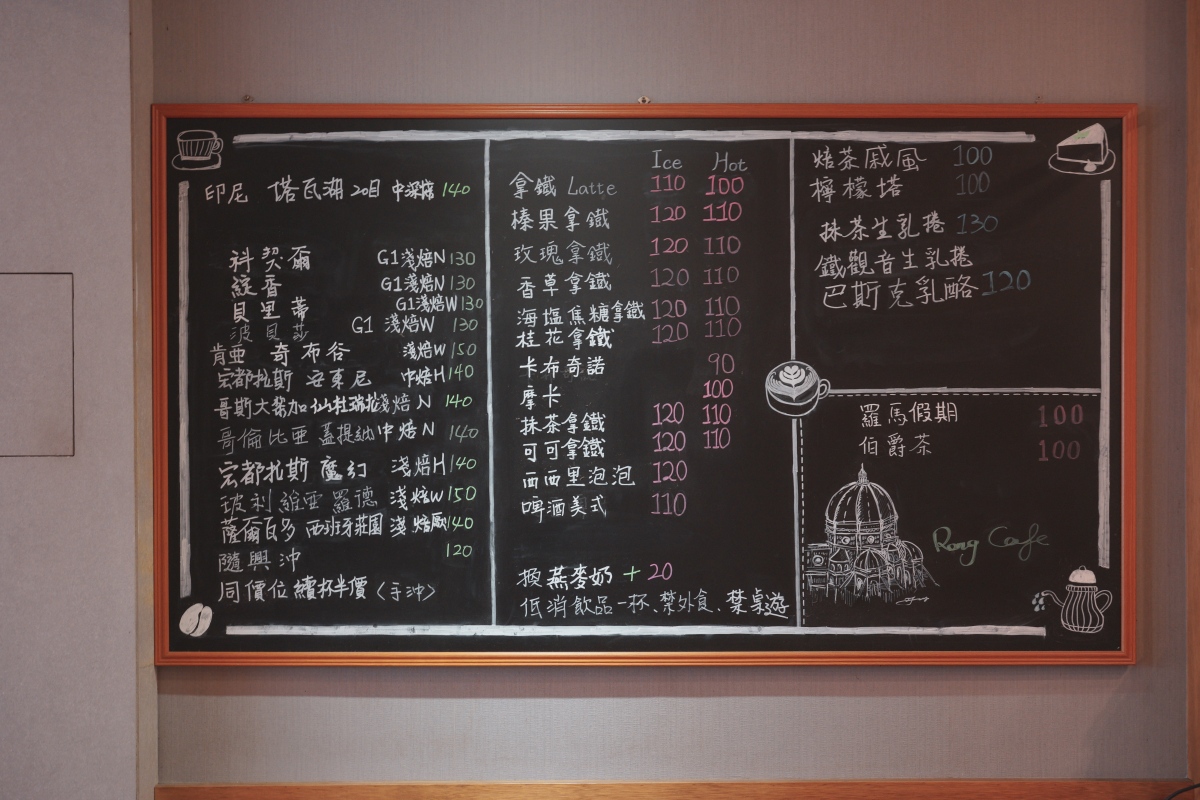 印尼 塔瓦湖 20目 中深焙 140
科契爾 G1淺焙N 130
綻香 G1淺焙N 130
貝里蒂 G1淺焙W 130
波貝莎 G1 淺焙W 130
肯亞 奇布谷 淺焙W 150
宏都拉斯 安東尼 中焙H 140
哥斯大黎加 仙杜瑞拉 淺焙 N 140
哥倫比亞 蓋提納 中焙 N 140
宏都拉斯 魔幻 淺焙H 140
玻利維亞 羅德 淺焙W 150
薩爾瓦多 西班牙莊園 淺焙厭 140
隨興沖 120
同價位續杯半價〈手沖〉
Ice Hot
拿鐵 Latte 110 100
榛果拿鐵 120 110
玫瑰拿鐵 120 110
香草拿鐵 120 110
海塩焦糖拿鐵 120 110
桂花拿鐵 120 110
卡布奇諾 90
摩卡 100
抹茶拿鐵 120 110
可可拿鐵 120 110
西西里泡泡 120
啤酒美式 110
換燕麥奶 +20
低消飲品一杯、禁外食、禁桌遊
焙茶戚風 100
檸檬塔 100
抹茶生乳捲 130
鐵觀音生乳捲
巴斯克乳酪 120
羅馬假期 100
伯爵茶 100
Rong Cafe